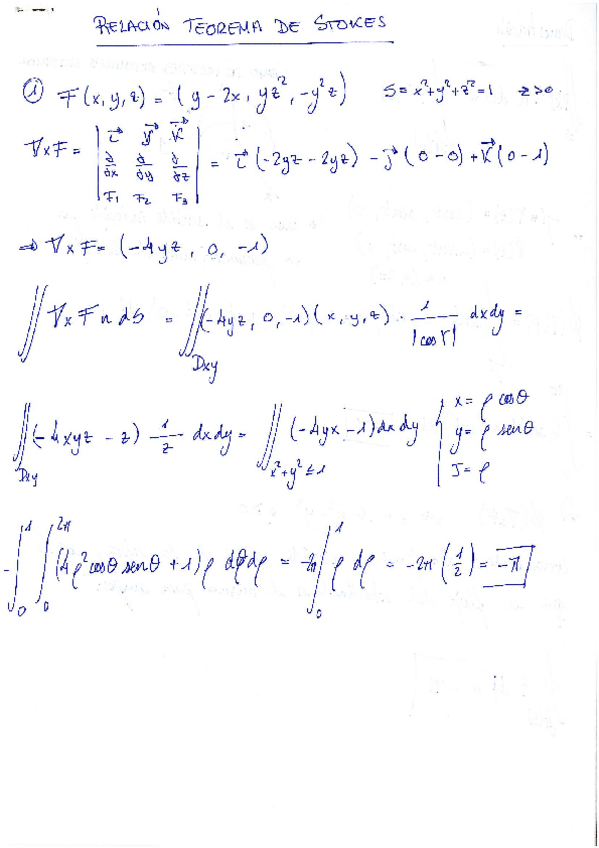 RELACIÓN TEOREMA DE STOKES
① F(x,y,z) = (y-2x, yz², -y²z) S = x²+y²+z²=1 z>0
∇xF = | i⃗ j⃗ k⃗ ; ∂/∂x ∂/∂y ∂/∂z ; F₁ F₂ F₃ | = i⃗(-2yz-2yz) - j⃗(0-0) + k⃗(0-1)
⇒ ∇xF = (-4yz, 0, -1)
∬ ∇xF n dS = ∬_Dxy (-4yz, 0, -1)(x,y,z) · 1/|cos γ| dxdy =
∬_Dxy (-4xyz - z) 1/z dxdy = ∬_x²+y²≤1 (-4yx-1)dxdy { x = ρ cosθ
y = ρ senθ
J = ρ
-∫₀¹ ∫₀^2π (4ρ² cosθ senθ + 1)ρ dθdρ = -2π ∫₀¹ ρ dρ = -2π (1/2) = -π